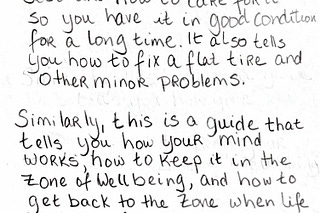 how to care for it
so you have it in good condition
for a long time. It also tells
you how to fix a flat tire and
other minor problems.
Similarly, this is a guide that
tells you how your mind
works, how to keep it in the
zone of wellbeing, and how to
get back to the zone when life